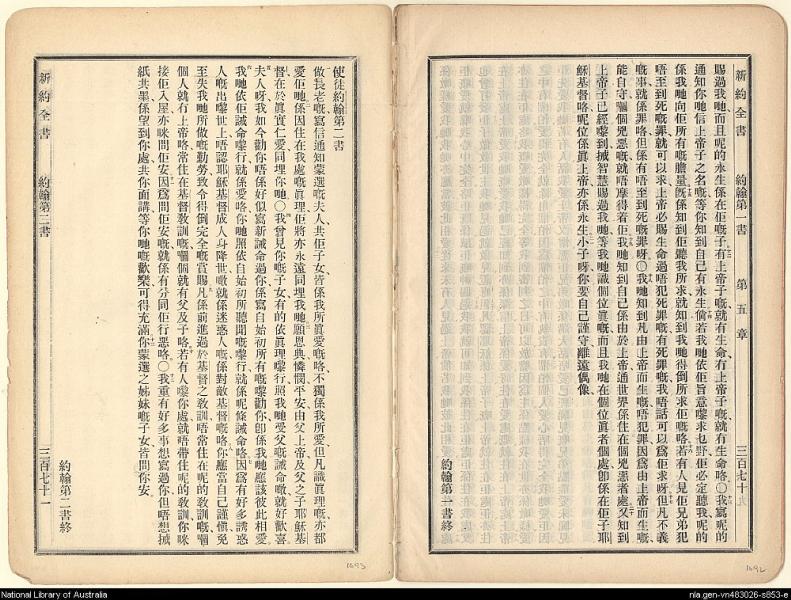 新約全書 約翰第一書 第五章 三百七十
賜過我哋而且呢的永生係在佢嘅子有上帝子嘅就有生命冇上帝子嘅就冇生命咯〇我寫呢的
通知你哋信上帝子之名嘅等你知到自己有永生倘若我哋依佢旨意嚟求乜野佢必定聽我呢的
係我哋向佢所有嘅膽量旣係知到佢聽我所求就知到我哋得倒所求佢嘅咯若有人見佢兄弟犯
唔至到死嘅罪就可以求上帝必賜生命過唔犯死罪嘅有死罪嘅我唔話可以爲佢求呀但凡不義
嘅事就係罪咯但係有唔至到死嘅罪呀〇我哋知到凡由上帝而生嘅唔犯罪因爲由上帝而生嘅
能自守嗰個兇惡嘅就唔摩得着佢我哋知到自己係由於上帝通世界係住在個兇惡者處又知到
上帝子已經嚟到摵智慧賜過我哋等我哋識個位眞嘅而且我哋在個位眞者個處卽係在佢子耶
穌基督咯呢位係眞上帝亦係永生小子呀你要自己謹守離遠偶像
約翰第一書終
使徒約翰第二書
做長老嘅寫信通知蒙選嘅夫人共佢子女皆係我所眞愛嘅咯不獨係我所愛但凡識眞理嘅亦都
愛佢哋係因住在我處嘅眞理佢將亦永遠同埋我哋願恩典憐憫平安由父上帝及父之子耶穌基
督在於眞實仁愛同埋你哋〇我曾見你嘅子女有的依眞理嚟行照我哋受父嘅誡命噉就好歡喜
夫人呀我如今勸你唔係好似寫新誡命過你係寫自始初所有嘅嚟勸你卽係我哋應該彼此相愛
我哋依佢誡命嚟行就係愛咯你哋照依自始初所聽聞嘅嚟行就係呢條誡命咯因爲有好多誘惑
人嘅出嚟世上唔認耶穌基督成人身降世噉就係迷惑人嘅係對敵基督嘅咯你應當自己謹愼免
至失我哋所做嘅勤勞致令得倒完全嘅賞賜凡係前進過於基督之教訓唔常住在呢的教訓嘅嗰
個人就冇上帝咯常住在基督教訓嘅嗰個就有父及子咯若有人嚟你處就唔帶住呢的教訓你咪
接佢入屋亦咪問佢安因爲問佢安嘅就係有分同佢行惡咯〇我重有好多事想寫過你但唔想摵
紙共墨係望到你處共你面講等你哋嘅歡樂可得充滿你蒙選之姊妹嘅子女皆問你安
約翰第二書終
新約全書 約翰第三書 三百七十一
1693
1692
National Library of Australia
nla.gen-vn483026-s853-e